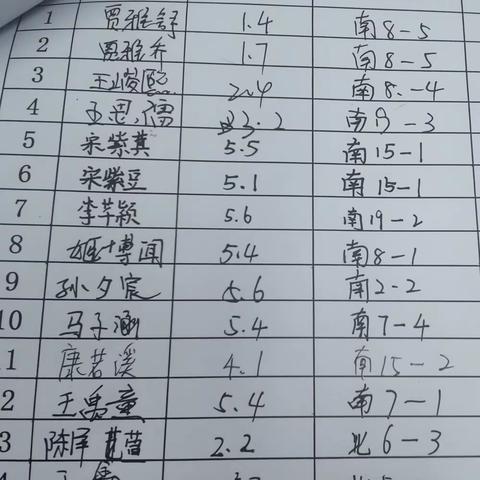 1 贾雅舒 1.4 南8-5
2 贾雅乔 1.7 南8-5
3 王峻熙 2.4 南8-4
4 王思儒 3.2 南9-3
5 宋紫萁 5.5 南15-1
6 宋紫豆 5.1 南15-1
7 李芊颖 5.6 南19-2
8 姬博闻 5.4 南8-1
9 孙夕宸 5.6 南2-2
10 马子涵 5.4 南7-4
1 康若溪 4.1 南15-2
2 王禹童 5.4 南7-1
3 陈 2.2 北6-3